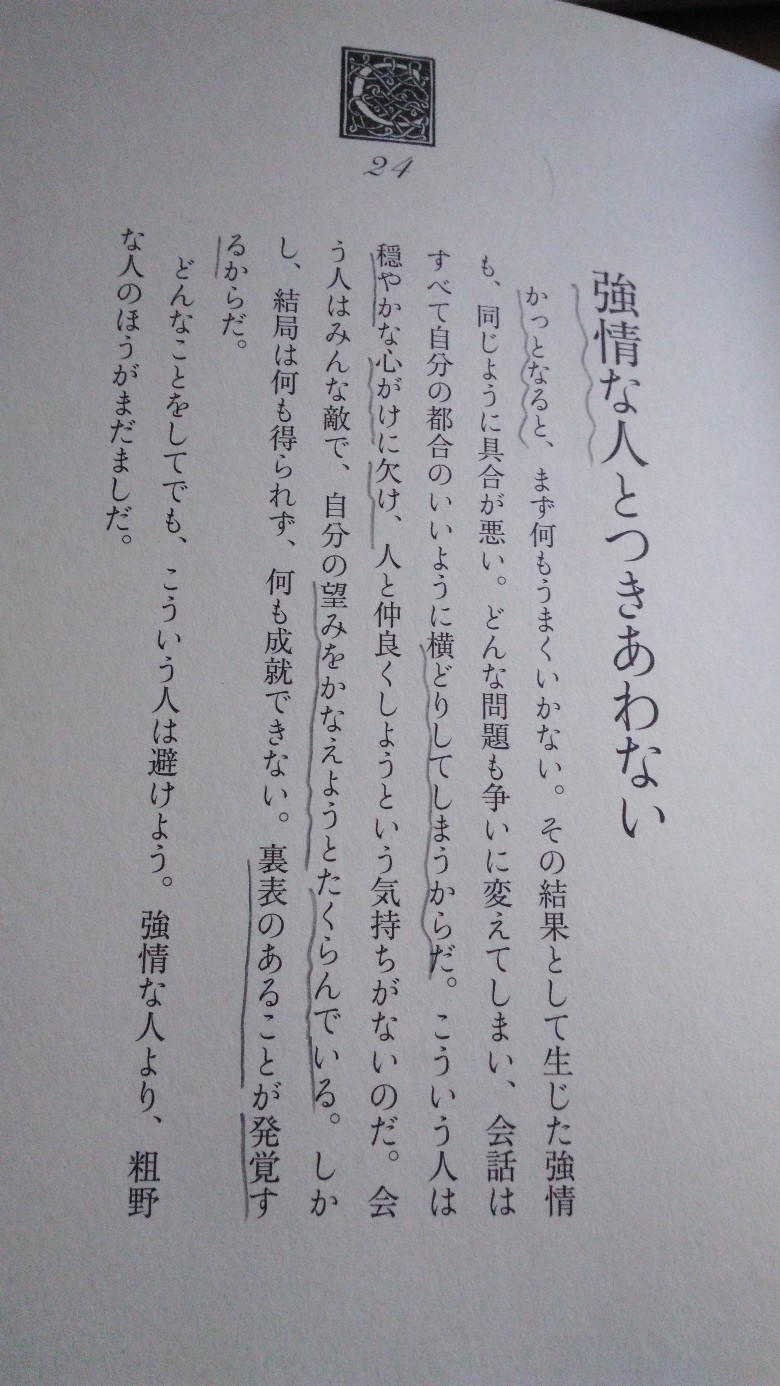 24
強情な人とつきあわない
かっとなると、まず何もうまくいかない。その結果として生じた強情
も、同じように具合が悪い。どんな問題も争いに変えてしまい、会話は
すべて自分の都合のいいように横どりしてしまうからだ。こういう人は
穏やかな心がけに欠け、人と仲良くしようという気持ちがないのだ。会
う人はみんな敵で、自分の望みをかなえようとたくらんでいる。しか
し、結局は何も得られず、何も成就できない。裏表のあることが発覚す
るからだ。
どんなことをしてでも、こういう人は避けよう。強情な人より、粗野
な人のほうがまだましだ。